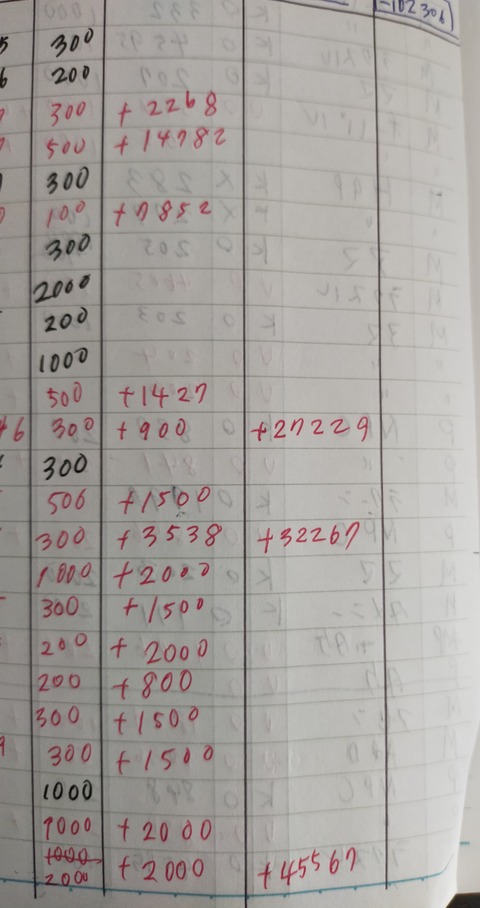 -102306
300
200
300 +2268
500 +14782
300
100 +7852
300
2000
200
1000
500 +1427
46 300 +900 +27229
300
500 +1500
300 +3538 +32267
1000 +2000
300 +1500
200 +2000
200 +800
300 +1500
300 +1500
1000
1000 +2000
1000
2000 +2000 +45567